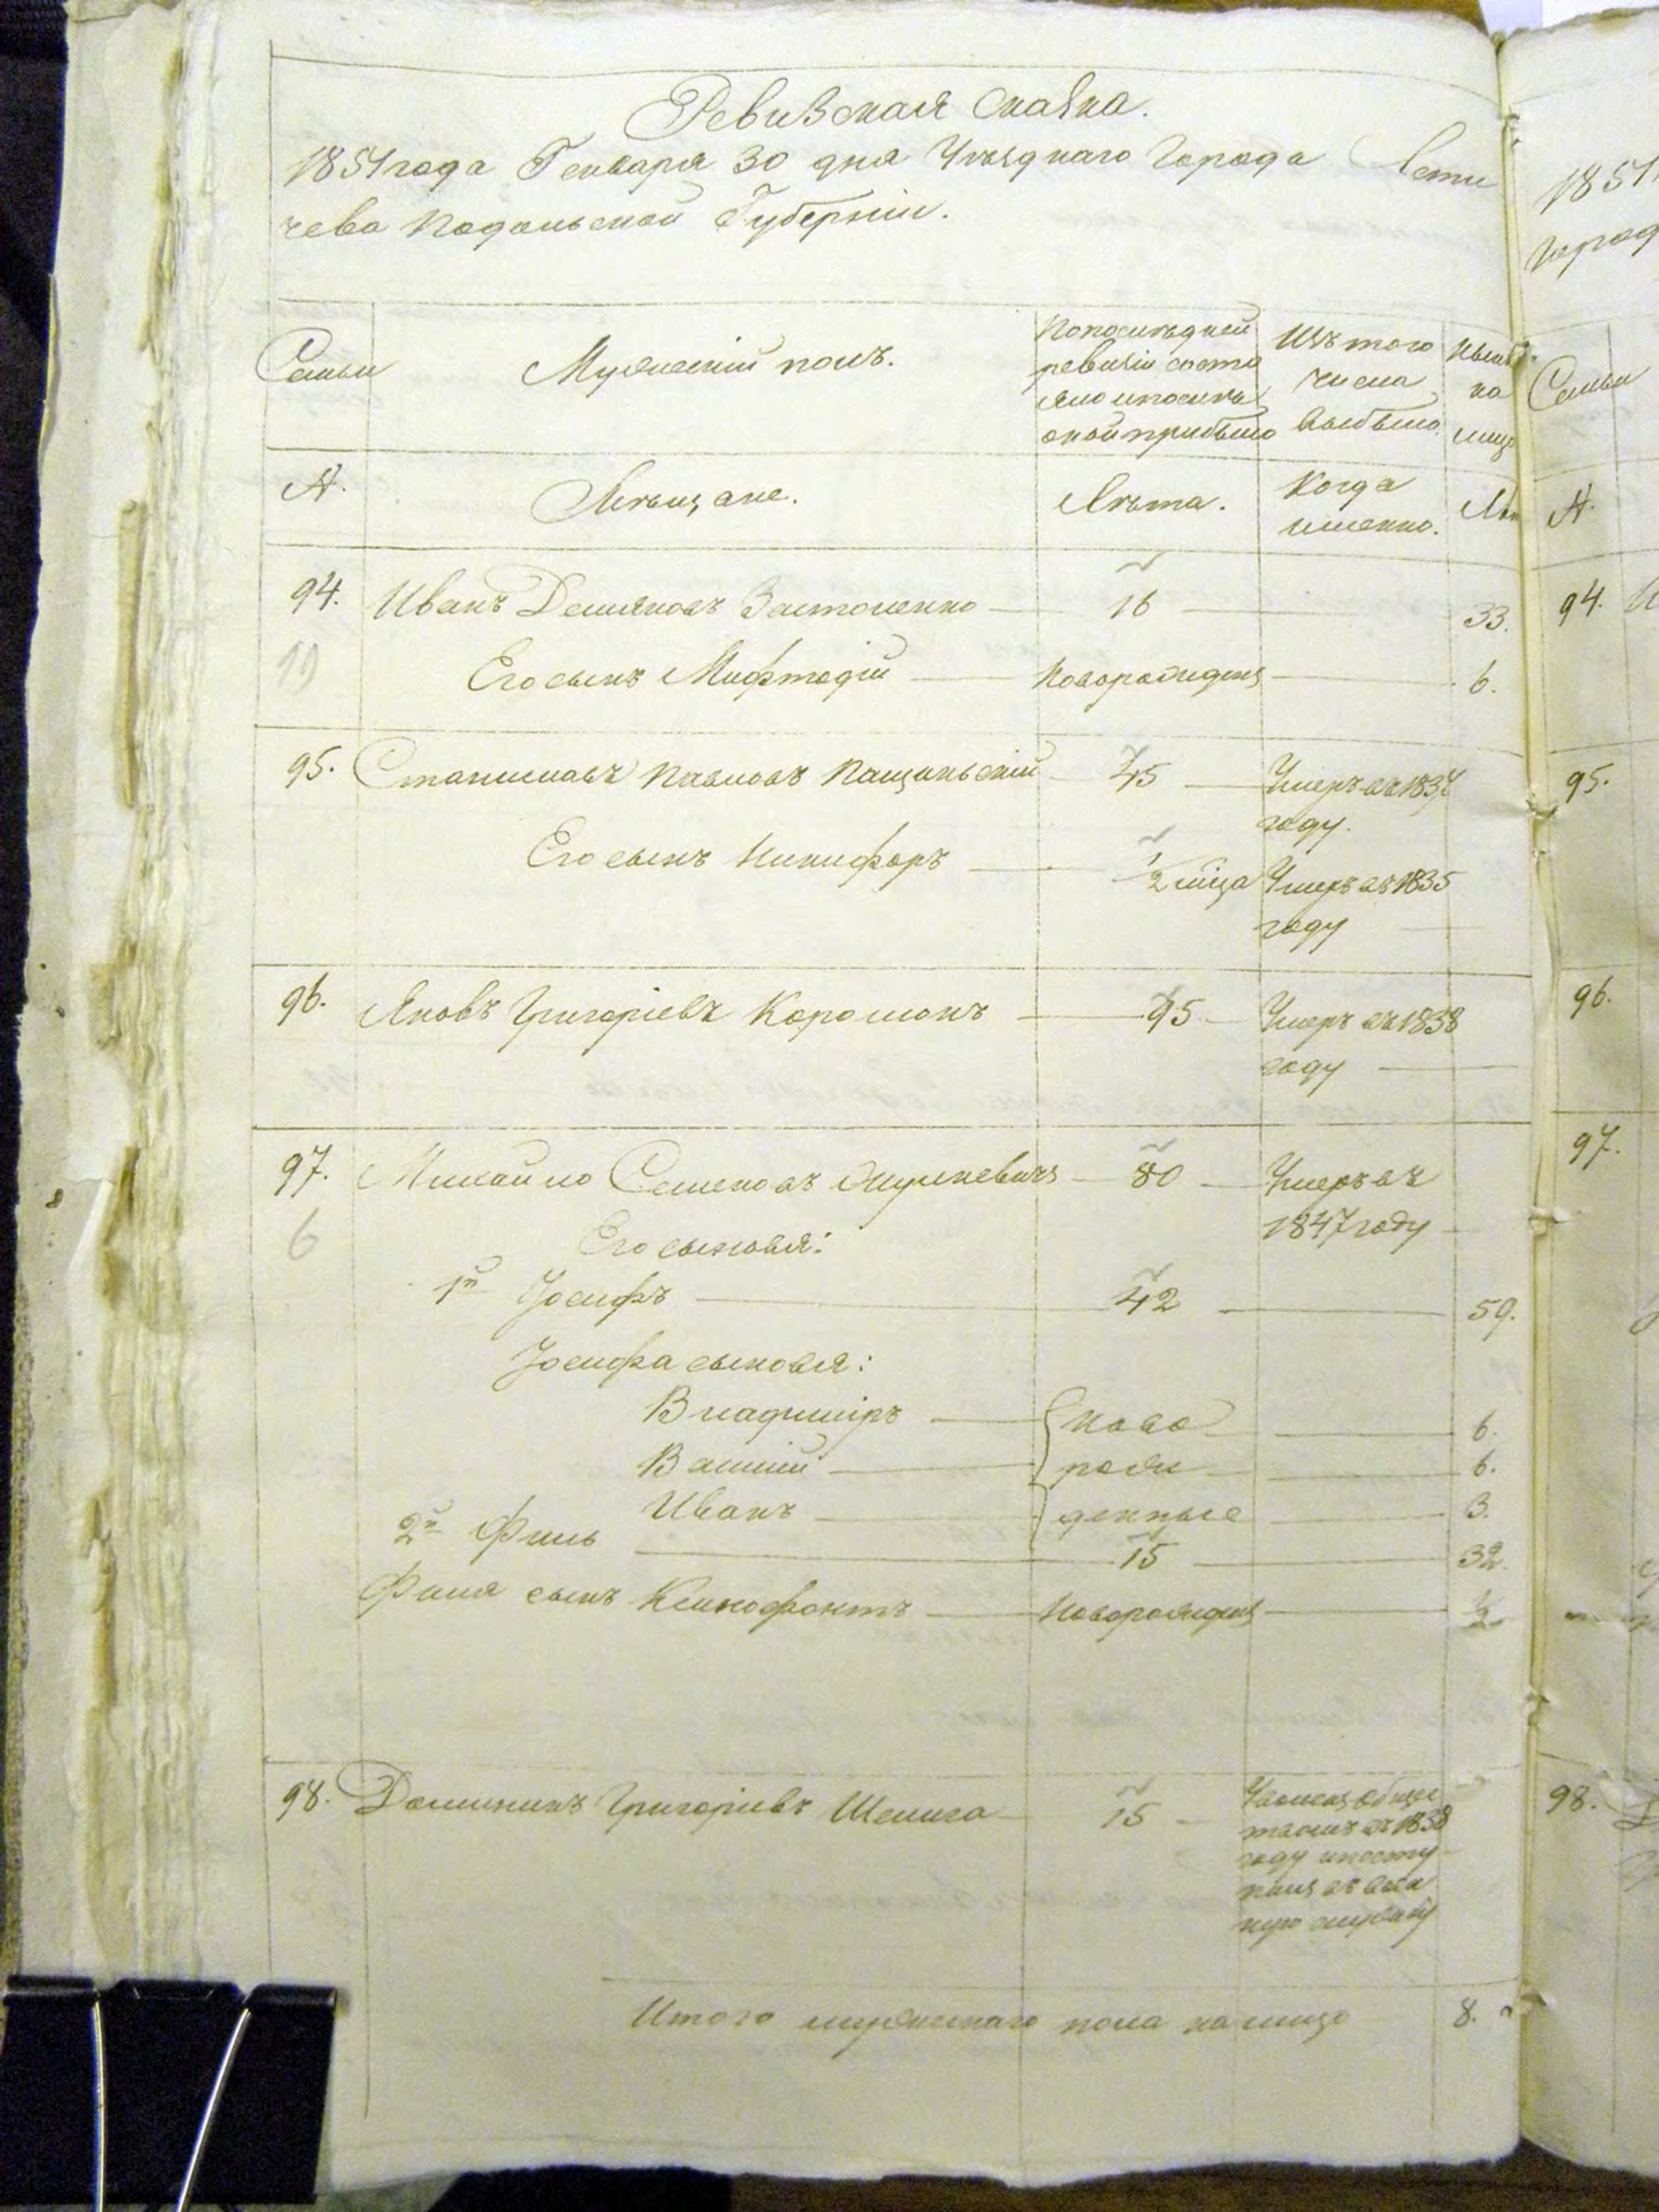 Ревизская Сказка.
1851 года Генваря 30 дня Уѣзднаго Города Лети
чева Подольской Губерніи.
Семьи
Мужескій полъ.
Попослѣдней
ревизіи состо
яло ипослѣ
оной прибыло
Изъ того
числа
выбыло.
Нынѣ
на
лицо
Мѣщане.
Лѣта.
Когда
именно.
94. Иванъ Демяновъ 16 33.
19 Его сынъ Мифтодій Новорожденъ 6.
95. Станиславъ Павловъ 45 Умеръ въ 1837
году.
Его сынъ Никифоръ 1/2 мѣца Умеръ въ 1835
году
96. Яковъ Григоріевъ 95 Умеръ въ 1838
году
97. Михайло Семеновъ 80 Умеръ въ
1847 году
6 Его сыновья:
1й Іосифъ 42 59.
Іосифа сыновья:
Владиміръ ново 6.
Василій рож 6.
Иванъ денные 3.
2й Филь 15 32.
Филя сынъ Ксенофонтъ Новорожденъ 1/2
98. Доминикъ Григоріевъ Шелига 15
въ 1838
году посту
пилъ въ воен
ную службу
Итого мужескаго пола налицо 8.
1851
Город
Семьи
94. И
95.
96.
97.
98.